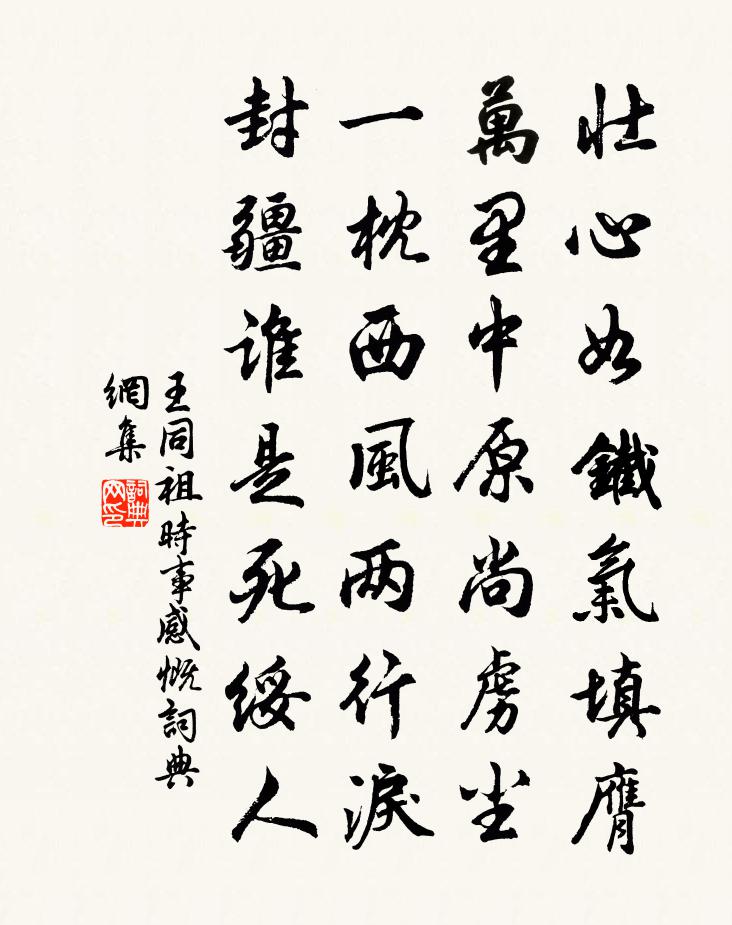 壮心如鐵氣填膺
萬里中原尚虜尘
一枕西風两行淚
封疆誰是死綏人
王同祖時事感慨詞典
網集
詞典
网印